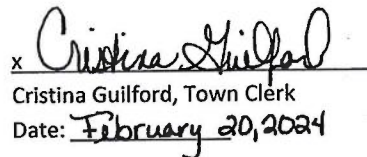 x Cristina Guilford
Cristina Guilford, Town Clerk
Date: February 20, 2024